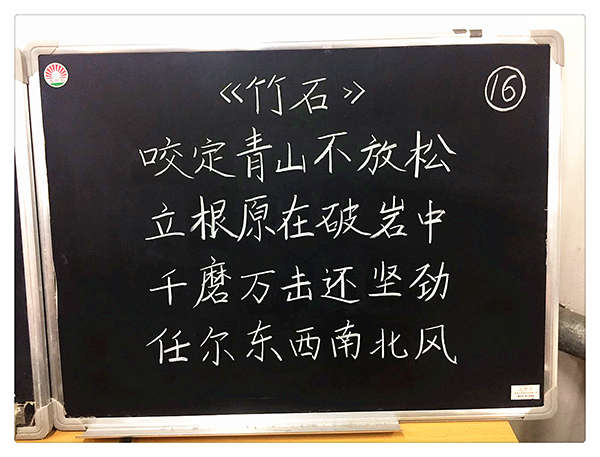 《竹石》
16
咬定青山不放松
立根原在破岩中
千磨万击还坚劲
任尔东西南北风